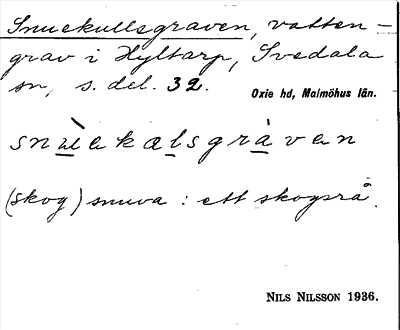 Snuekullsgraven, vatten-
grav i Hyltarp, Svedala
sn, s. del. 32.
Oxie hd, Malmöhus län.
snùekalsgràven
(skog) snuva : ett skogsrå.
NILS NILSSON 1936.